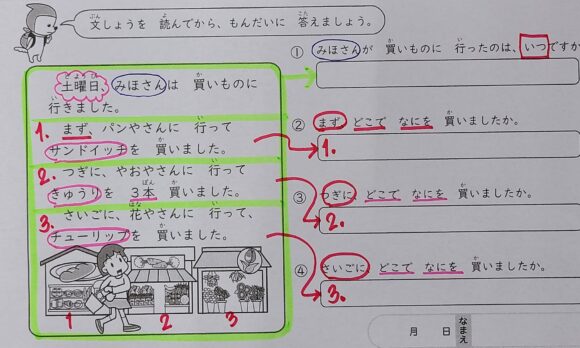 文しょうを 読んでから、もんだいに 答えましょう。
土曜日、みほさんは 買いものに
行きました。
1. まず、パンやさんに 行って
サンドイッチを 買いました。
2. つぎに、やおやさんに 行って
きゅうりを 3本 買いました。
3. さいごに、花やさんに 行って、
チューリップを 買いました。
1 2 3
① みほさんが 買いものに 行ったのは、いつですか
② まず どこで なにを 買いましたか。
1.
③ つぎに、どこで なにを 買いましたか。
2.
④ さいごに、どこで なにを 買いましたか。
3.
月 日 なまえ